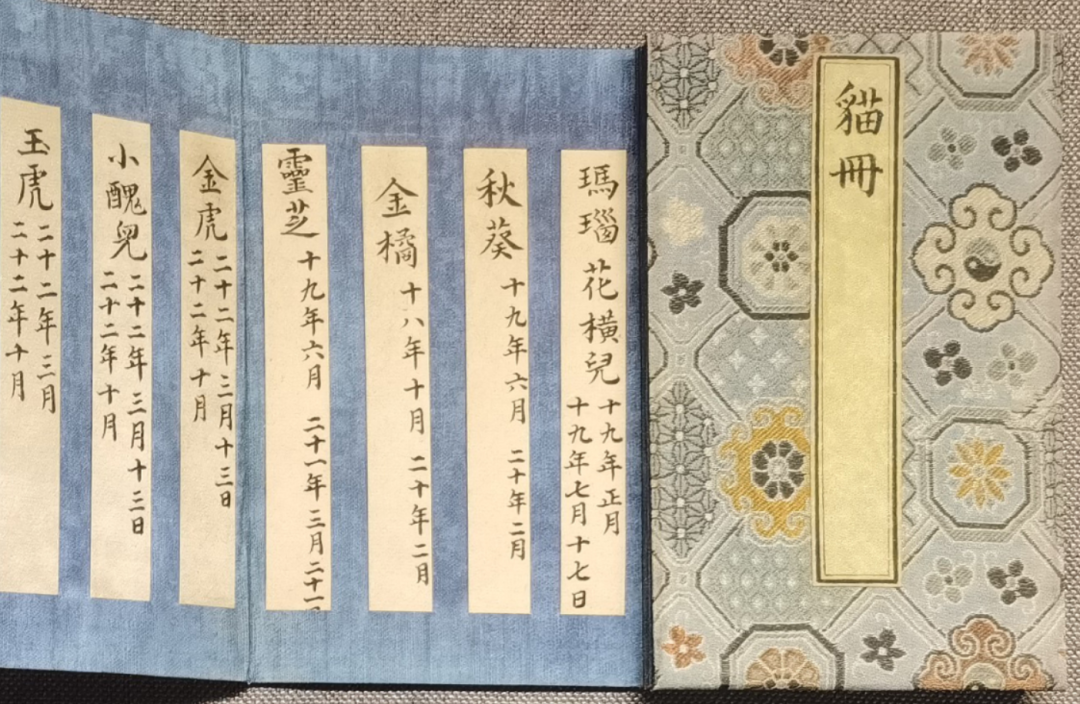 貓冊
瑪瑙 花橫兒
十九年正月
十九年七月十七日
秋葵
十九年六月 二十年二月
金橘
十八年十月 二十年二月
靈芝
十九年六月 二十一年三月二十一
金虎
二十二年三月十三日
二十二年十月
小醜兒
二十二年三月十三日
二十二年十月
玉虎
二十二年三月
二十二年十月